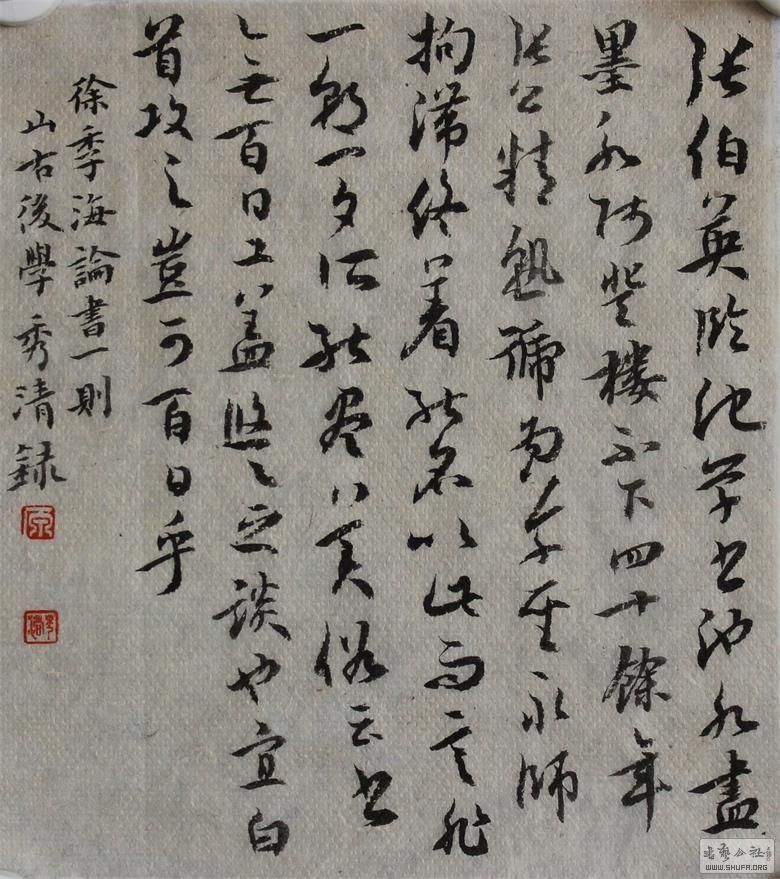 张伯英臨池学书池水盡
墨永师登樓不下四十餘年
张公精熟號为草聖永師
拘滯終著能名以此而言非
一朝一夕所能盡美俗云书
无百日工蓋悠々之談也宜白
首攻之豈可百日乎
徐季海論書一則
山古後學秀清録
书艺公社
WWW.SHUFA.ORG